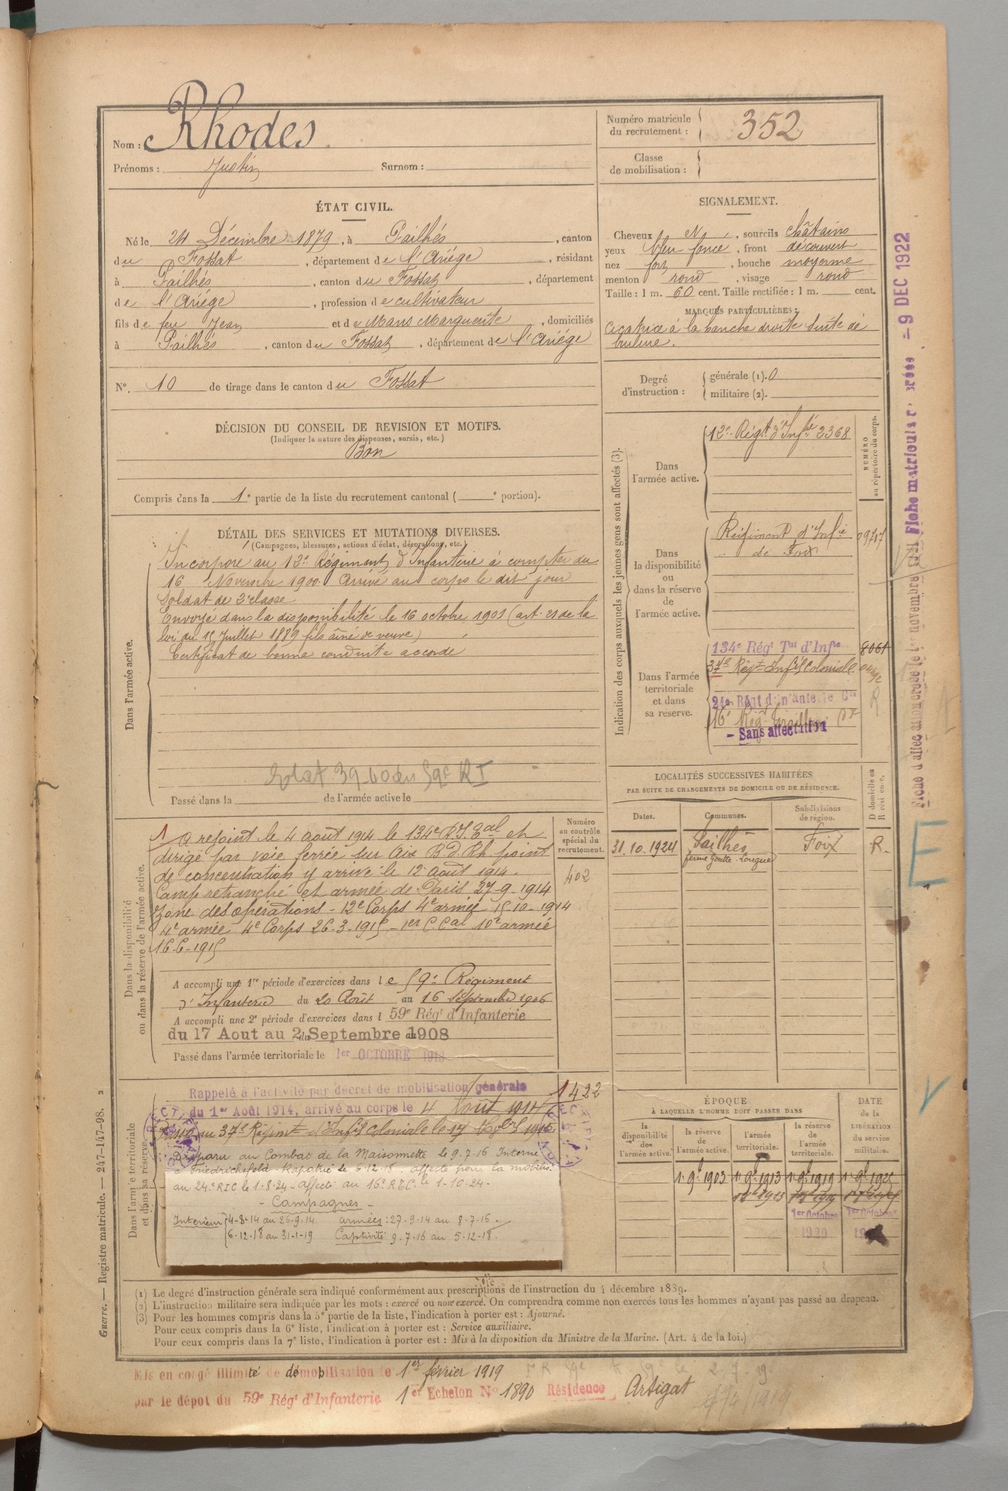 Nom : Rhodes
Prénoms : Justin Surnom :
Numéro matricule du recrutement : 352
Classe de mobilisation :
ÉTAT CIVIL.
Né le 24 Décembre 1879, à Pailhès, canton
du Fossat, département de l'Ariège, résidant
à Pailhès, canton du Fossat, département
de l'Ariège, profession de cultivateur
fils de feu Jean et de Mans Marguerite, domiciliés
à Pailhès, canton du Fossat, département de l'Ariège
N° 10 de tirage dans le canton du Fossat
SIGNALEMENT.
Cheveux N, sourcils châtains
yeux bleu foncé, front découvert
nez fort, bouche moyenne
menton rond, visage rond
Taille : 1 m. 60 cent. Taille rectifiée : 1 m. cent.
MARQUES PARTICULIÈRES :
Cicatrice à la hanche droite suite de
brulure.
Degré d'instruction : générale (1). 0
militaire (2).
DÉCISION DU CONSEIL DE REVISION ET MOTIFS.
(Indiquer la nature des dispenses, sursis, etc.)
Bon
Compris dans la 1e partie de la liste du recrutement cantonal ( e portion).
DÉTAIL DES SERVICES ET MUTATIONS DIVERSES.
(Campagnes, blessures, actions d'éclat, décorations, etc.)
Dans l'armée active.
Incorporé au 12e Régiment d'Infanterie à compter du
16 Novembre 1900 arrivé au corps le dit jour
Soldat de 2e classe
Envoyé dans la disponibilité le 16 octobre 1901 (art 21 de la
loi du 15 Juillet 1889 fils aîné de veuve)
Certificat de bonne conduite accordé
Passé dans la de l'armée active le
Indication des corps auxquels les jeunes gens sont affectés (3).
NUMÉRO au répertoire du corps.
Dans l'armée active.
12e Régt d'Infie 2368
Dans la disponibilité ou dans la réserve de l'armée active.
Régiment d'Infie
de Foix
Dans l'armée territoriale et dans sa réserve.
134e Régt Tal d'Infie 8061
37e Régt Infie Coloniale
24e Régt d'infanterie Cle
16e Rég
- Sans affectation
LOCALITÉS SUCCESSIVES HABITÉES
PAR SUITE DE CHANGEMENTS DE DOMICILE OU DE RÉSIDENCE.
Dates. Communes. Subdivisions de région. D domicile ou R résidence.
31.10.1924 Pailhès Foix R.
ferme Goutte Longue
Dans la disponibilité ou dans la réserve de l'armée active.
Numéro au contrôle spécial du recrutement.
402
A rejoint le 4 août 1914 le 134e R.I.Tal et
dirigé par voie ferrée sur Aix B.d.Rh. point
de concentration y arrivé le 12 août 1914.
Camp retranché et armée de Paris 27-9-1914
Zone des opérations - 12e Corps 4e armée 15-10-1914
4e armée 4e Corps 26-3-1915 - 1er C.Cal 10e armée
16-6-1915
A accompli une 1re période d'exercices dans le 59e Régiment
d'Infanterie du 20 Août au 16 Septembre 1906
A accompli une 2e période d'exercices dans l 59e Régt d'Infanterie
du 17 Aout au 2 Septembre 1908
Passé dans l'armée territoriale le 1er OCTOBRE 1913
Dans l'armée territoriale et dans sa réserve.
Rappelé à l'activité par décret de mobilisation générale
du 1er Août 1914, arrivé au corps le 4 Août 1914
1422
Passé au 37e Régiment d'Infie Coloniale le 17
Disparu au Combat de la Maisonnette le 9.7.16 Interné
à Friedrichsfeld. Rapatrié le 5.12.18. affecté pour la mobilon
au 24e RIC le 1-8-24 - affecté au 16e RTC. le 1-10-24-
- Campagnes -
Intérieur 4-8-14 au 26-9-14. armées : 27-9-14 au 8-7-16 -
6-12-18 au 31-1-19 Captivité 9-7-16 au 5-12-18.
ÉPOQUE
À LAQUELLE L'HOMME DOIT PASSER DANS
la disponibilité de l'armée active. la réserve de l'armée active. l'armée territoriale. la réserve de l'armée territoriale. DATE de la LIBÉRATION du service militaire.
1.9bre 1903 1.9bre 1913 1.9bre 1919 1.9bre 1925
1er Octobre
1920
(1) Le degré d'instruction générale sera indiqué conformément aux prescriptions de l'instruction du 4 décembre 1889.
(2) L'instruction militaire sera indiquée par les mots : exercé ou non exercé. On comprendra comme non exercés tous les hommes n'ayant pas passé au drapeau.
(3) Pour les hommes compris dans la 5e partie de la liste, l'indication à porter est : Ajourné.
Pour ceux compris dans la 6e liste, l'indication à porter est : Service auxiliaire.
Pour ceux compris dans la 7e liste, l'indication à porter est : Mis à la disposition du Ministre de la Marine. (Art. 4 de la loi.)
Guerre. — Registre matricule. — 247-147-98.
Mis en congé illimité de démobilisation le 1er février 1919
par le dépot du 59e Régt d'Infanterie 1er Echelon N° 1890 Résidence Artigat
- 9 DEC 1922